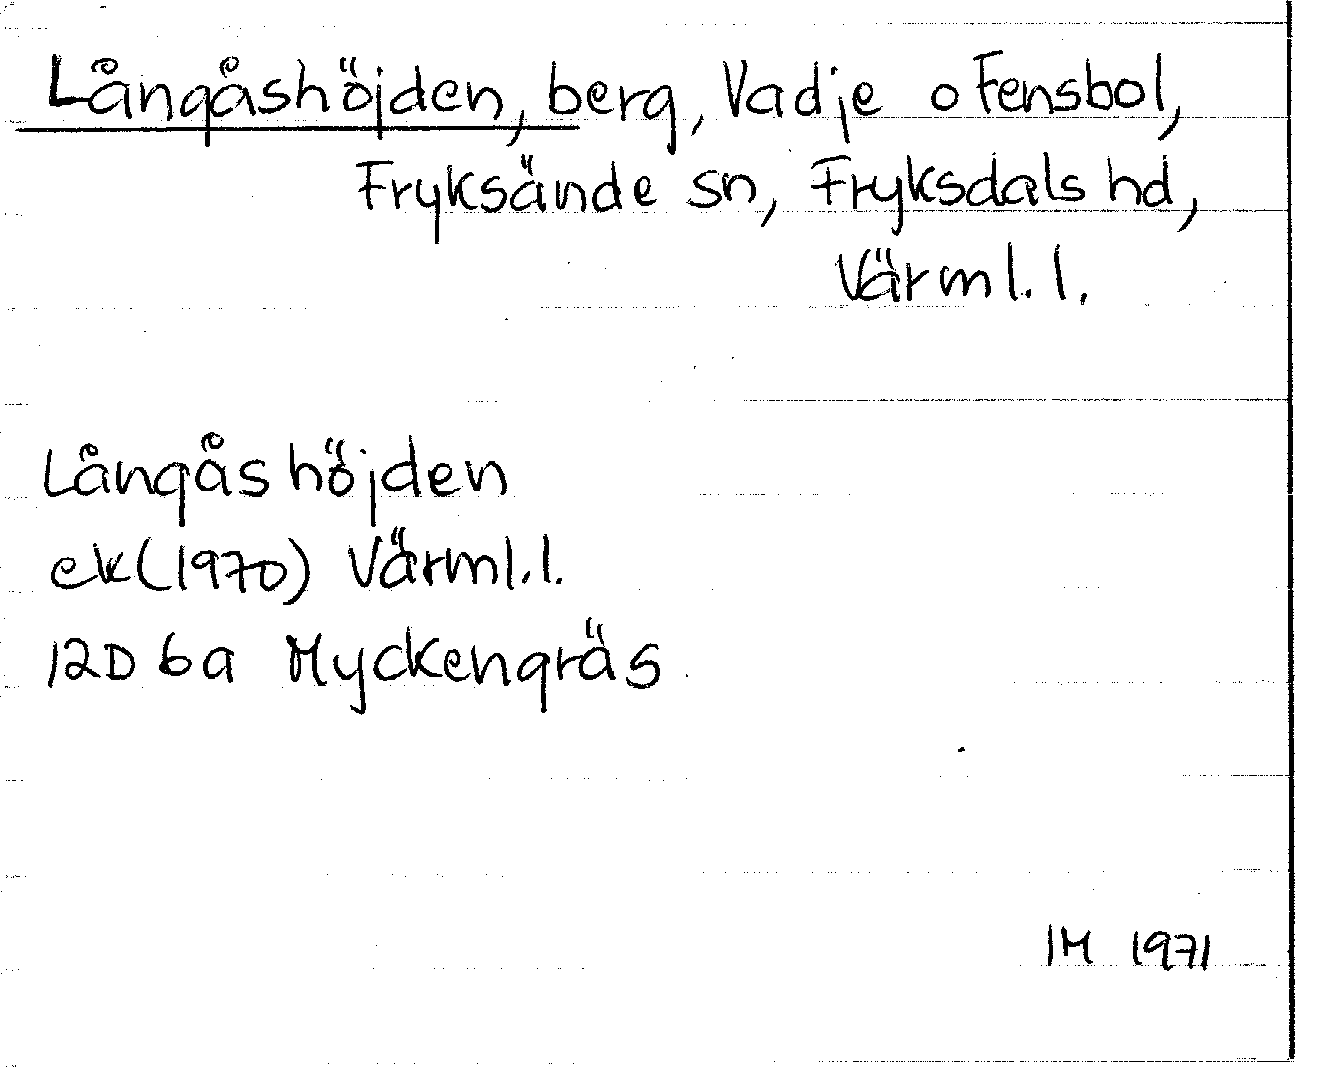 Långåshöjden, berg, Vadje o Fensbol,
Fryksände sn, Fryksdals hd,
Värml. l.
Långåshöjden
ek(1970) Värml.l.
12D 6a Myckengräs
IM 1971